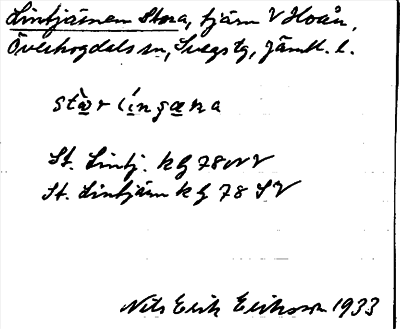 Lintjärnen Stora, tjärn V Hoån,
Överhogdals sn, Svegs tg, Jämtl. l.
stὰ̱r lί̱nsæ̱na
St. Lintj. kg 78 NV
St. Lintjärn kg 78 SV
Nils Erik Eriksson 1933